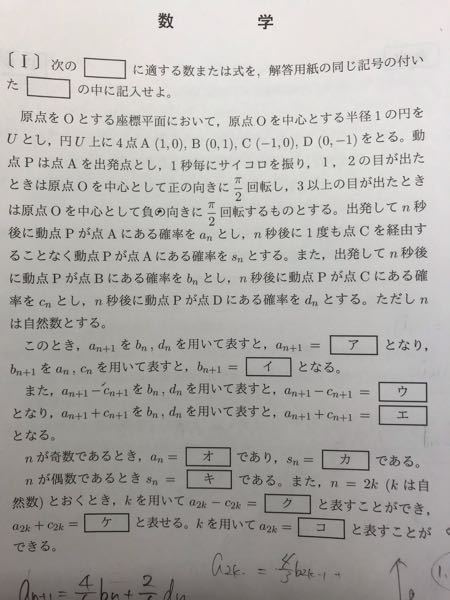 数 学
〔Ⅰ〕次の□に適する数または式を、解答用紙の同じ記号の付い
た□の中に記入せよ。
原点をOとする座標平面において,原点Oを中心とする半径1の円を
Uとし,円U上に4点A (1, 0), B (0, 1), C (−1, 0), D (0, −1)をとる。動
点Pは点Aを出発点とし,1秒毎にサイコロを振り,1,2の目が出た
ときは原点Oを中心として正の向きにπ/2回転し,3以上の目が出たとき
は原点Oを中心として負の向きにπ/2回転するものとする。出発してn秒
後に動点Pが点Aにある確率をaₙとし,n秒後に1度も点Cを経由す
ることなく動点Pが点Aにある確率をsₙとする。また,出発してn秒
後に動点Pが点Bにある確率をbₙとし,n秒後に動点Pが点Cにある確
率をcₙとし,n秒後に動点Pが点Dにある確率をdₙとする。ただしn
は自然数とする。
このとき,aₙ₊₁をbₙ, dₙを用いて表すと,aₙ₊₁ = ア となり,
bₙ₊₁をaₙ, cₙを用いて表すと,bₙ₊₁ = イ となる。
また,aₙ₊₁−cₙ₊₁をbₙ, dₙを用いて表すと,aₙ₊₁−cₙ₊₁ = ウ
となり,aₙ₊₁+cₙ₊₁をbₙ, dₙを用いて表すと,aₙ₊₁+cₙ₊₁ = エ
となる。
nが奇数であるとき,aₙ = オ であり,sₙ = カ である。
nが偶数であるときsₙ = キ である。また,n = 2k (kは自
然数)とおくとき,kを用いてa₂ₖ−c₂ₖ = ク と表すことができ,
a₂ₖ+c₂ₖ = ケ と表せる。kを用いてa₂ₖ = コ と表すことが
できる。